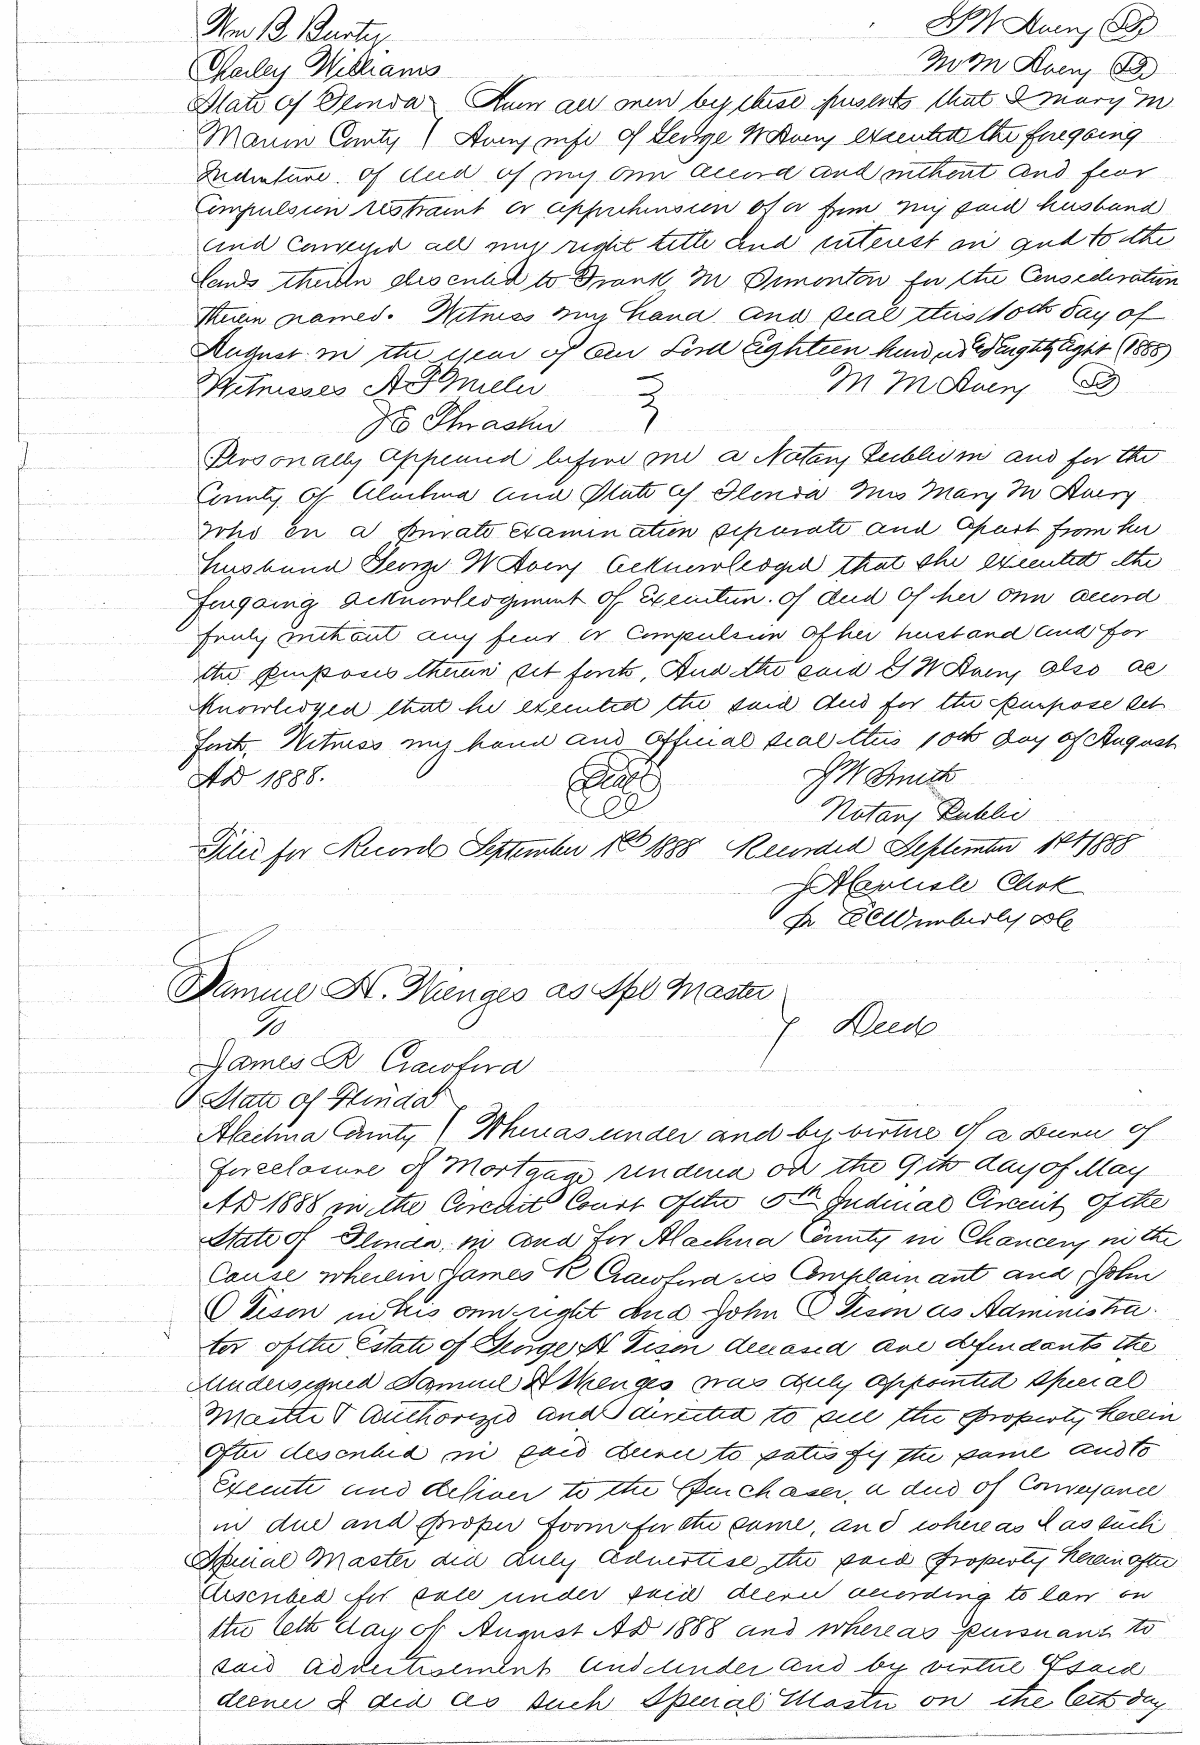 Wm B. Burtz G W Avery LS
Charley Williams M M Avery LS
State of Florida Know all men by these presents that I Mary M
Marion County Avery wife of George W Avery executed the foregoing
Indenture of deed of my own accord and without and fear
compulsion restraint or apprehension of or from my said husband
and conveyed all my right title and interest in and to the
lands therein described to Frank M Simonton for the Consideration
therein named. Witness my hand and seal this 10th day of
August in the year of our Lord Eighteen hundred Eighty Eight (1888)
Witnesses A F Miller M M Avery LS
J E Thrasher
Personally appeared before me a Notary Public in and for the
County of Alachua and State of Florida Mrs Mary M Avery
who on a private Examination separate and apart from her
husband George W Avery acknowledged that she executed the
foregoing acknowledgment of Execution of deed of her own accord
freely without any fear or compulsion of her husband and for
the purposes therein set forth, And the said G W Avery also ac
knowledged that he executed the said deed for the purpose set
forth. Witness my hand and official seal this 10th day of August
AD 1888. Seal J W Smith
Notary Public
Filed for Record September 1st 1888 Recorded September 1st 1888
J A Carlisle Clerk
pr E C Wimberly DC
Samuel H. Wienges as Spl Master
To Deed
James R Crawford
State of Florida
Alachua County Whereas under and by virtue of a Decree of
foreclosure of Mortgage rendered on the 9th day of May
AD 1888 in the Circuit Court of the 5th Judicial Circuit of the
State of Florida in and for Alachua County in Chancery in the
Cause wherein James R Crawford is Complainant and John
O Tison in his own right and John O Tison as Administra
tor of the Estate of George H Tison deceased are defendants the
Undersigned Samuel H Wienges was duly appointed special
Master & authorized and directed to sell the property herein
after described in said decree to satisfy the same and to
Execute and deliver to the purchaser, a deed of Conveyance
in due and proper form for the same, and whereas I as such
Special Master did duly advertise the said property hereinafter
described for sale under said decree according to law on
the 6th day of August AD 1888 and whereas pursuant to
said advertisement and under and by virtue of said
decree I did as such Special Master on the 6th day